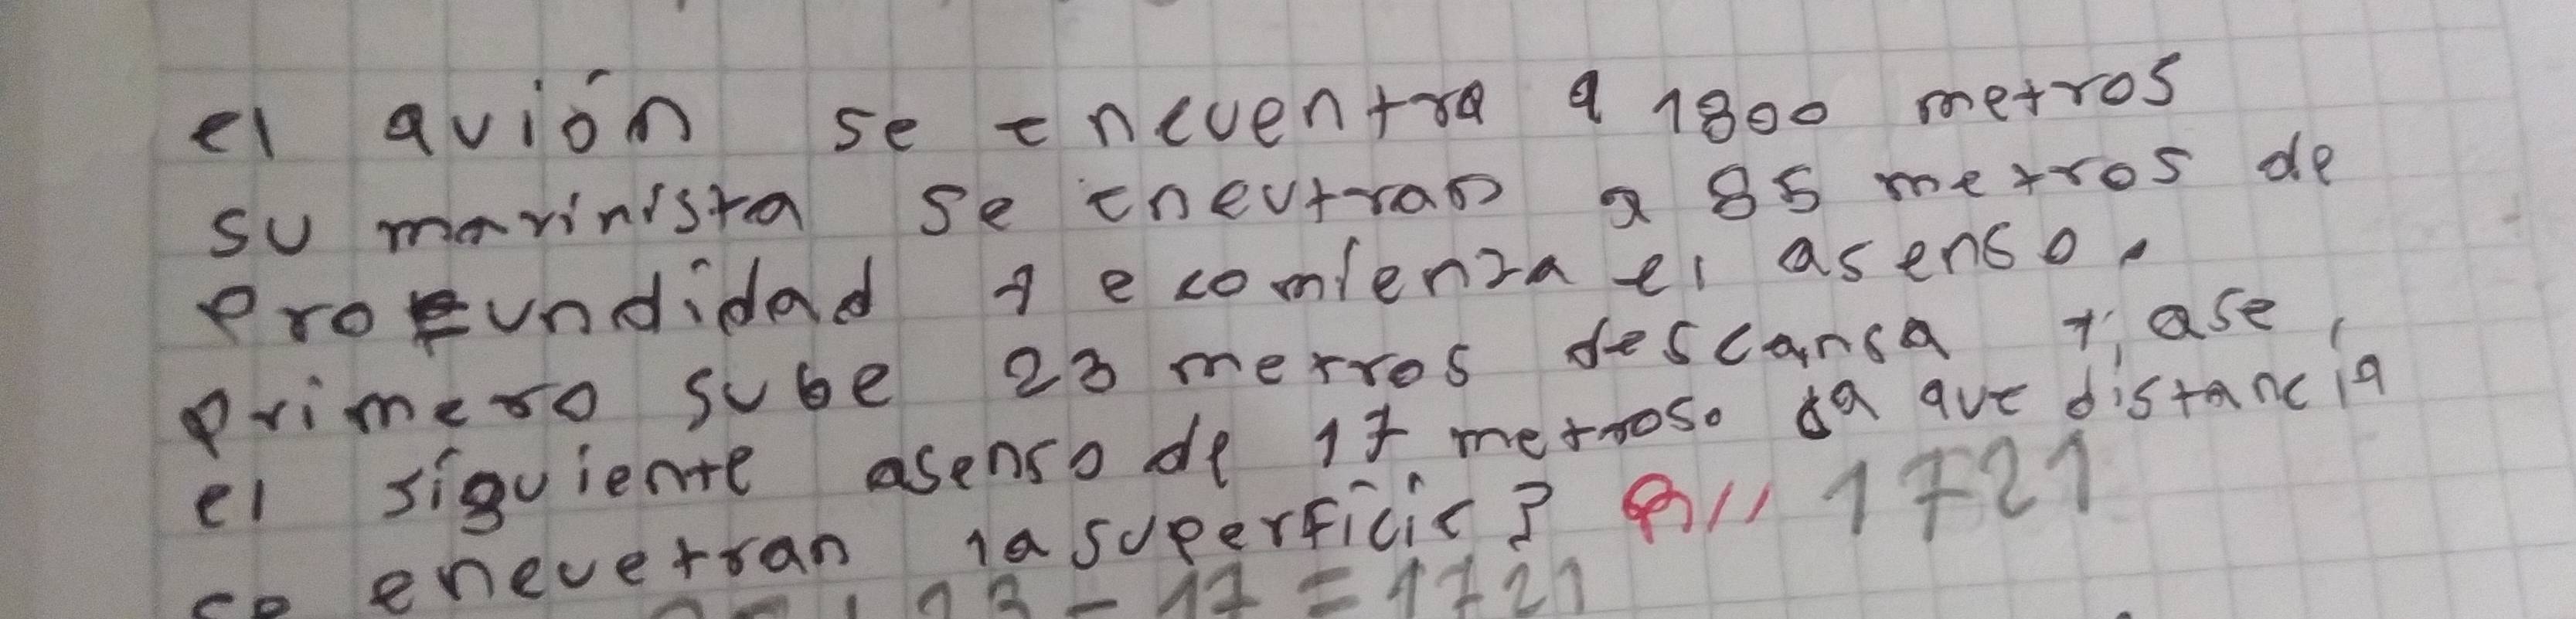 el avión se encuentra a 1800 metros
su marinista se eneutran a 85 metros de
profundidad y e comienza el asenso.
primero sube 23 metros descansa y, ase,
el siguiente asenso de 17 metros. da que distancia
se enevetran la superficie? R// 1721
23 - 17 = 1721